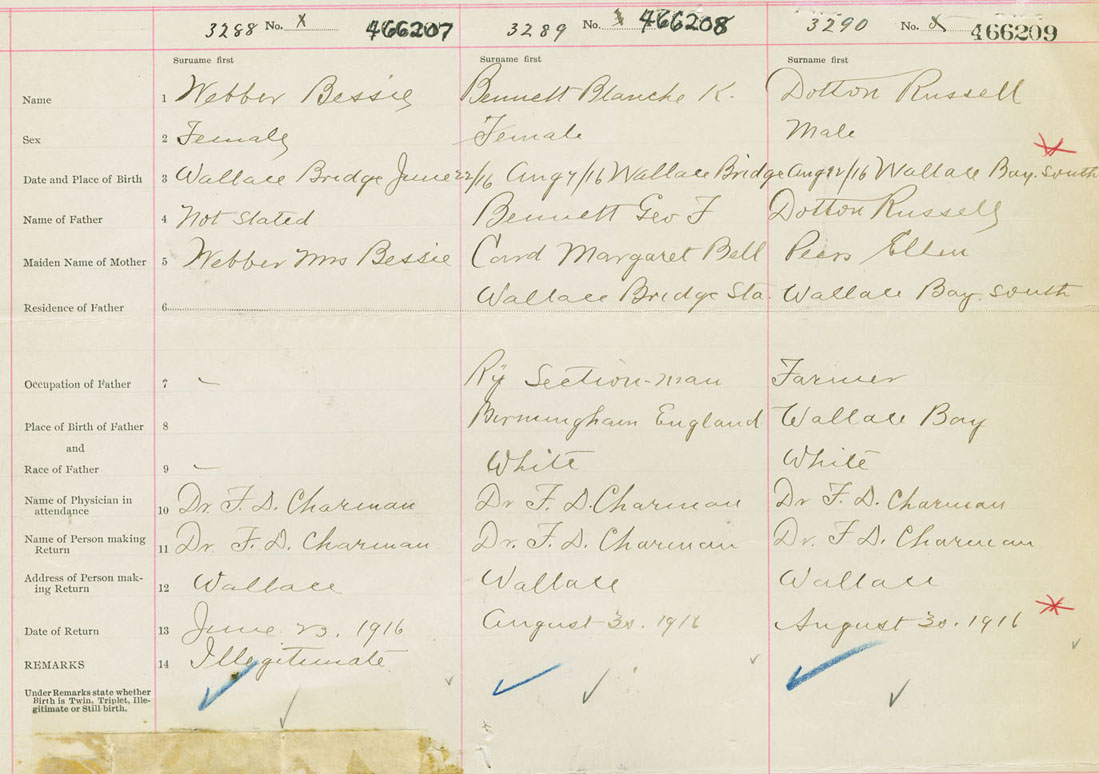 3288 No. X 466207 3289 No. X 466208 3290 No. X 466209
Surname first Surname first Surname first
Name 1 Webber Bessie Bennett Blanche K. Dotton Russell
Sex 2 Female Female Male
Date and Place of Birth 3 Wallace Bridge June 22/16 Aug 7/16 Wallace Bridge Aug 12/16 Wallace Bay South
Name of Father 4 Not Stated Bennett Geo F Dotton Russell
Maiden Name of Mother 5 Webber Mrs Bessie Card Margaret Bell Peers Ellen
Residence of Father 6 Wallace Bridge Sta. Wallace Bay South
Occupation of Father 7 – Ry Section-man Farmer
Place of Birth of Father 8 Birmingham England Wallace Bay
and
Race of Father 9 – White White
Name of Physician in
attendance 10 Dr. F. D. Charman Dr F. D. Charman Dr F. D. Charman
Name of Person making
Return 11 Dr. F. D. Charman Dr. F. D. Charman Dr. F D. Charman
Address of Person mak-
ing Return 12 Wallace Wallace Wallace
Date of Return 13 June 23, 1916 August 30. 1916 August 30. 1916
REMARKS 14 Illegitimate
Under Remarks state whether
Birth is Twin, Triplet, Ille-
gitimate or Still birth.